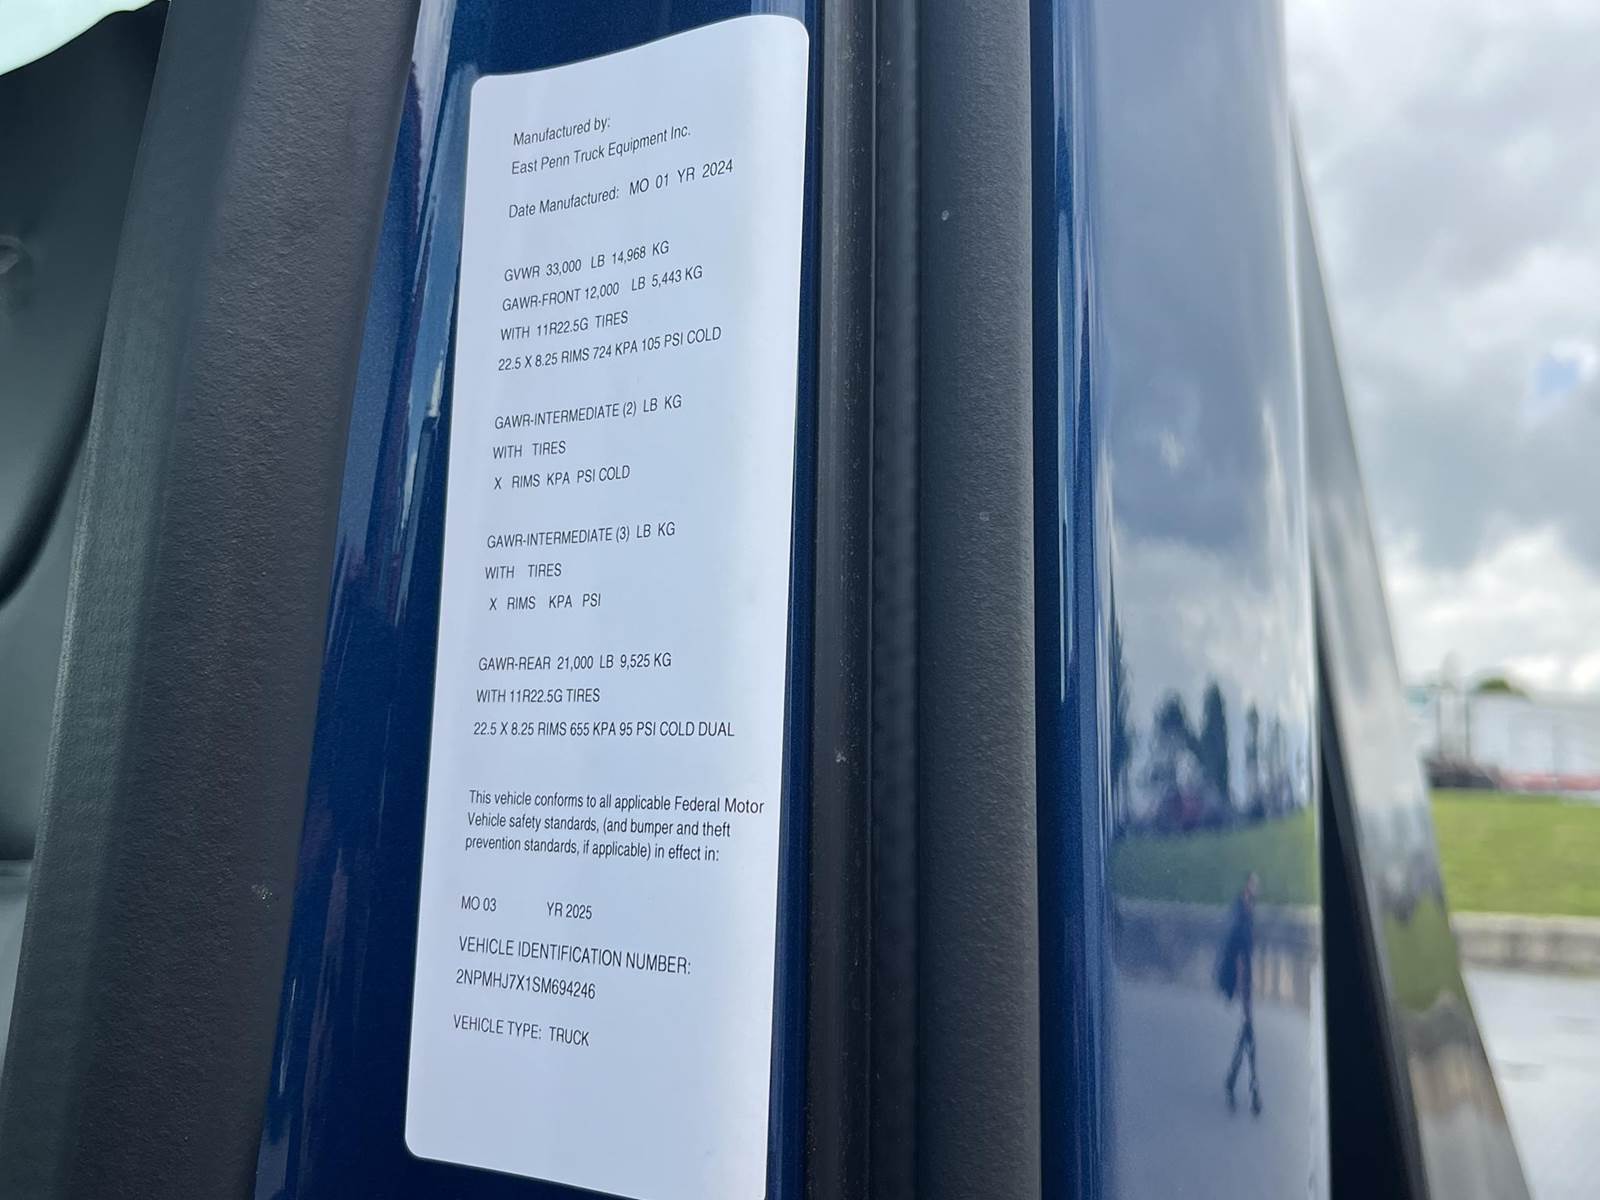 Manufactured by:
East Penn Truck Equipment Inc.
Date Manufactured: MO 01 YR 2024
GVWR 33,000 LB 14,968 KG
GAWR-FRONT 12,000 LB 5,443 KG
WITH 11R22.5G TIRES
22.5 X 8.25 RIMS 724 KPA 105 PSI COLD
GAWR-INTERMEDIATE (2) LB KG
WITH TIRES
X RIMS KPA PSI COLD
GAWR-INTERMEDIATE (3) LB KG
WITH TIRES
X RIMS KPA PSI
GAWR-REAR 21,000 LB 9,525 KG
WITH 11R22.5G TIRES
22.5 X 8.25 RIMS 655 KPA 95 PSI COLD DUAL
This vehicle conforms to all applicable Federal Motor
Vehicle safety standards, (and bumper and theft
prevention standards, if applicable) in effect in:
MO 03 YR 2025
VEHICLE IDENTIFICATION NUMBER:
2NPMHJ7X1SM694246
VEHICLE TYPE: TRUCK